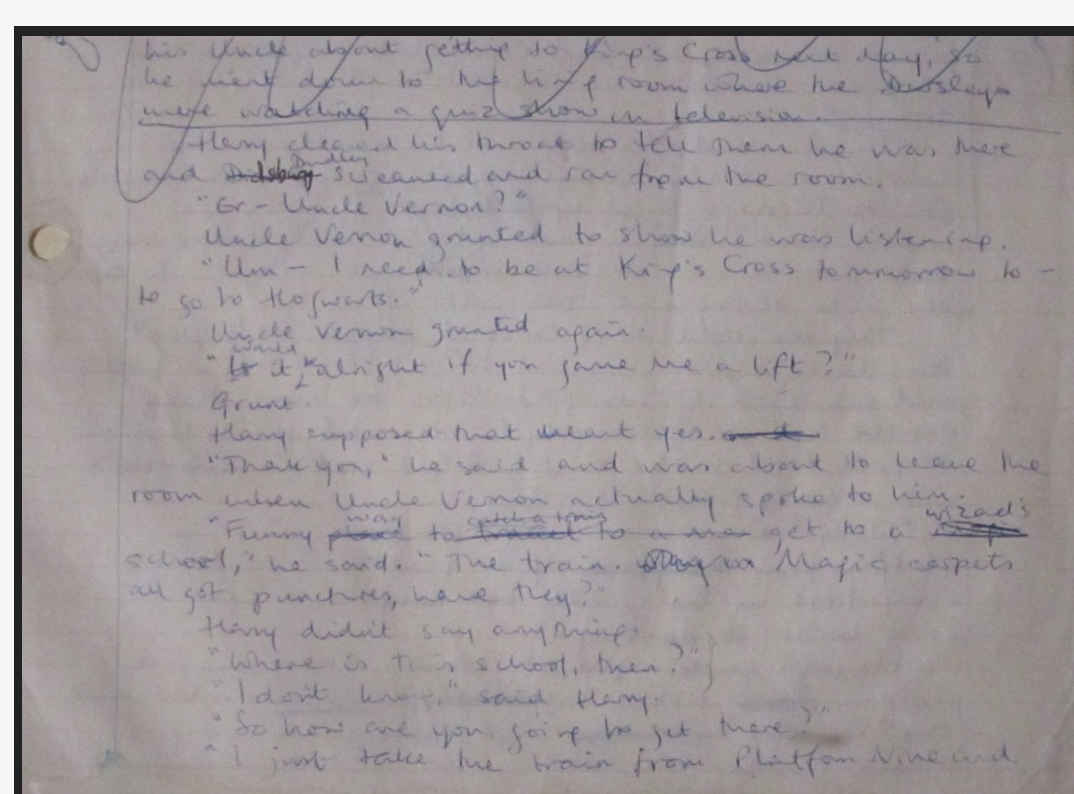 his Uncle about getting to King's Cross next day, so
he went down to the living room where the Dursleys
were watching a quiz show on television.
Harry cleared his throat to tell them he was there
and Dudley screamed and ran from the room.
"Er – Uncle Vernon?"
Uncle Vernon grunted to show he was listening.
"Um – I need to be at King's Cross tommorrow to –
to go to Hogwarts."
Uncle Vernon grunted again.
"Is would it be alright if you gave me a lift?"
Grunt.
Harry supposed that meant yes. and
"Thank you," he said and was about to leave the
room when Uncle Vernon actually spoke to him.
way catch a train wizad's
"Funny place to travel to a get to a
school," he said. "The train. Magic carpets
all got punctures, have they?"
Harry didn't say anything.
"Where is this school, then?"
"I don't know," said Harry.
"So how are you going to get there?"
"I just take the train from Platfom Nine and